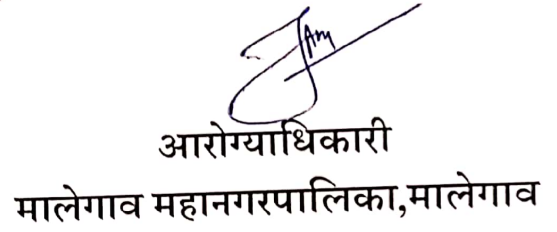 आरोग्याधिकारी
मालेगाव महानगरपालिका,मालेगाव